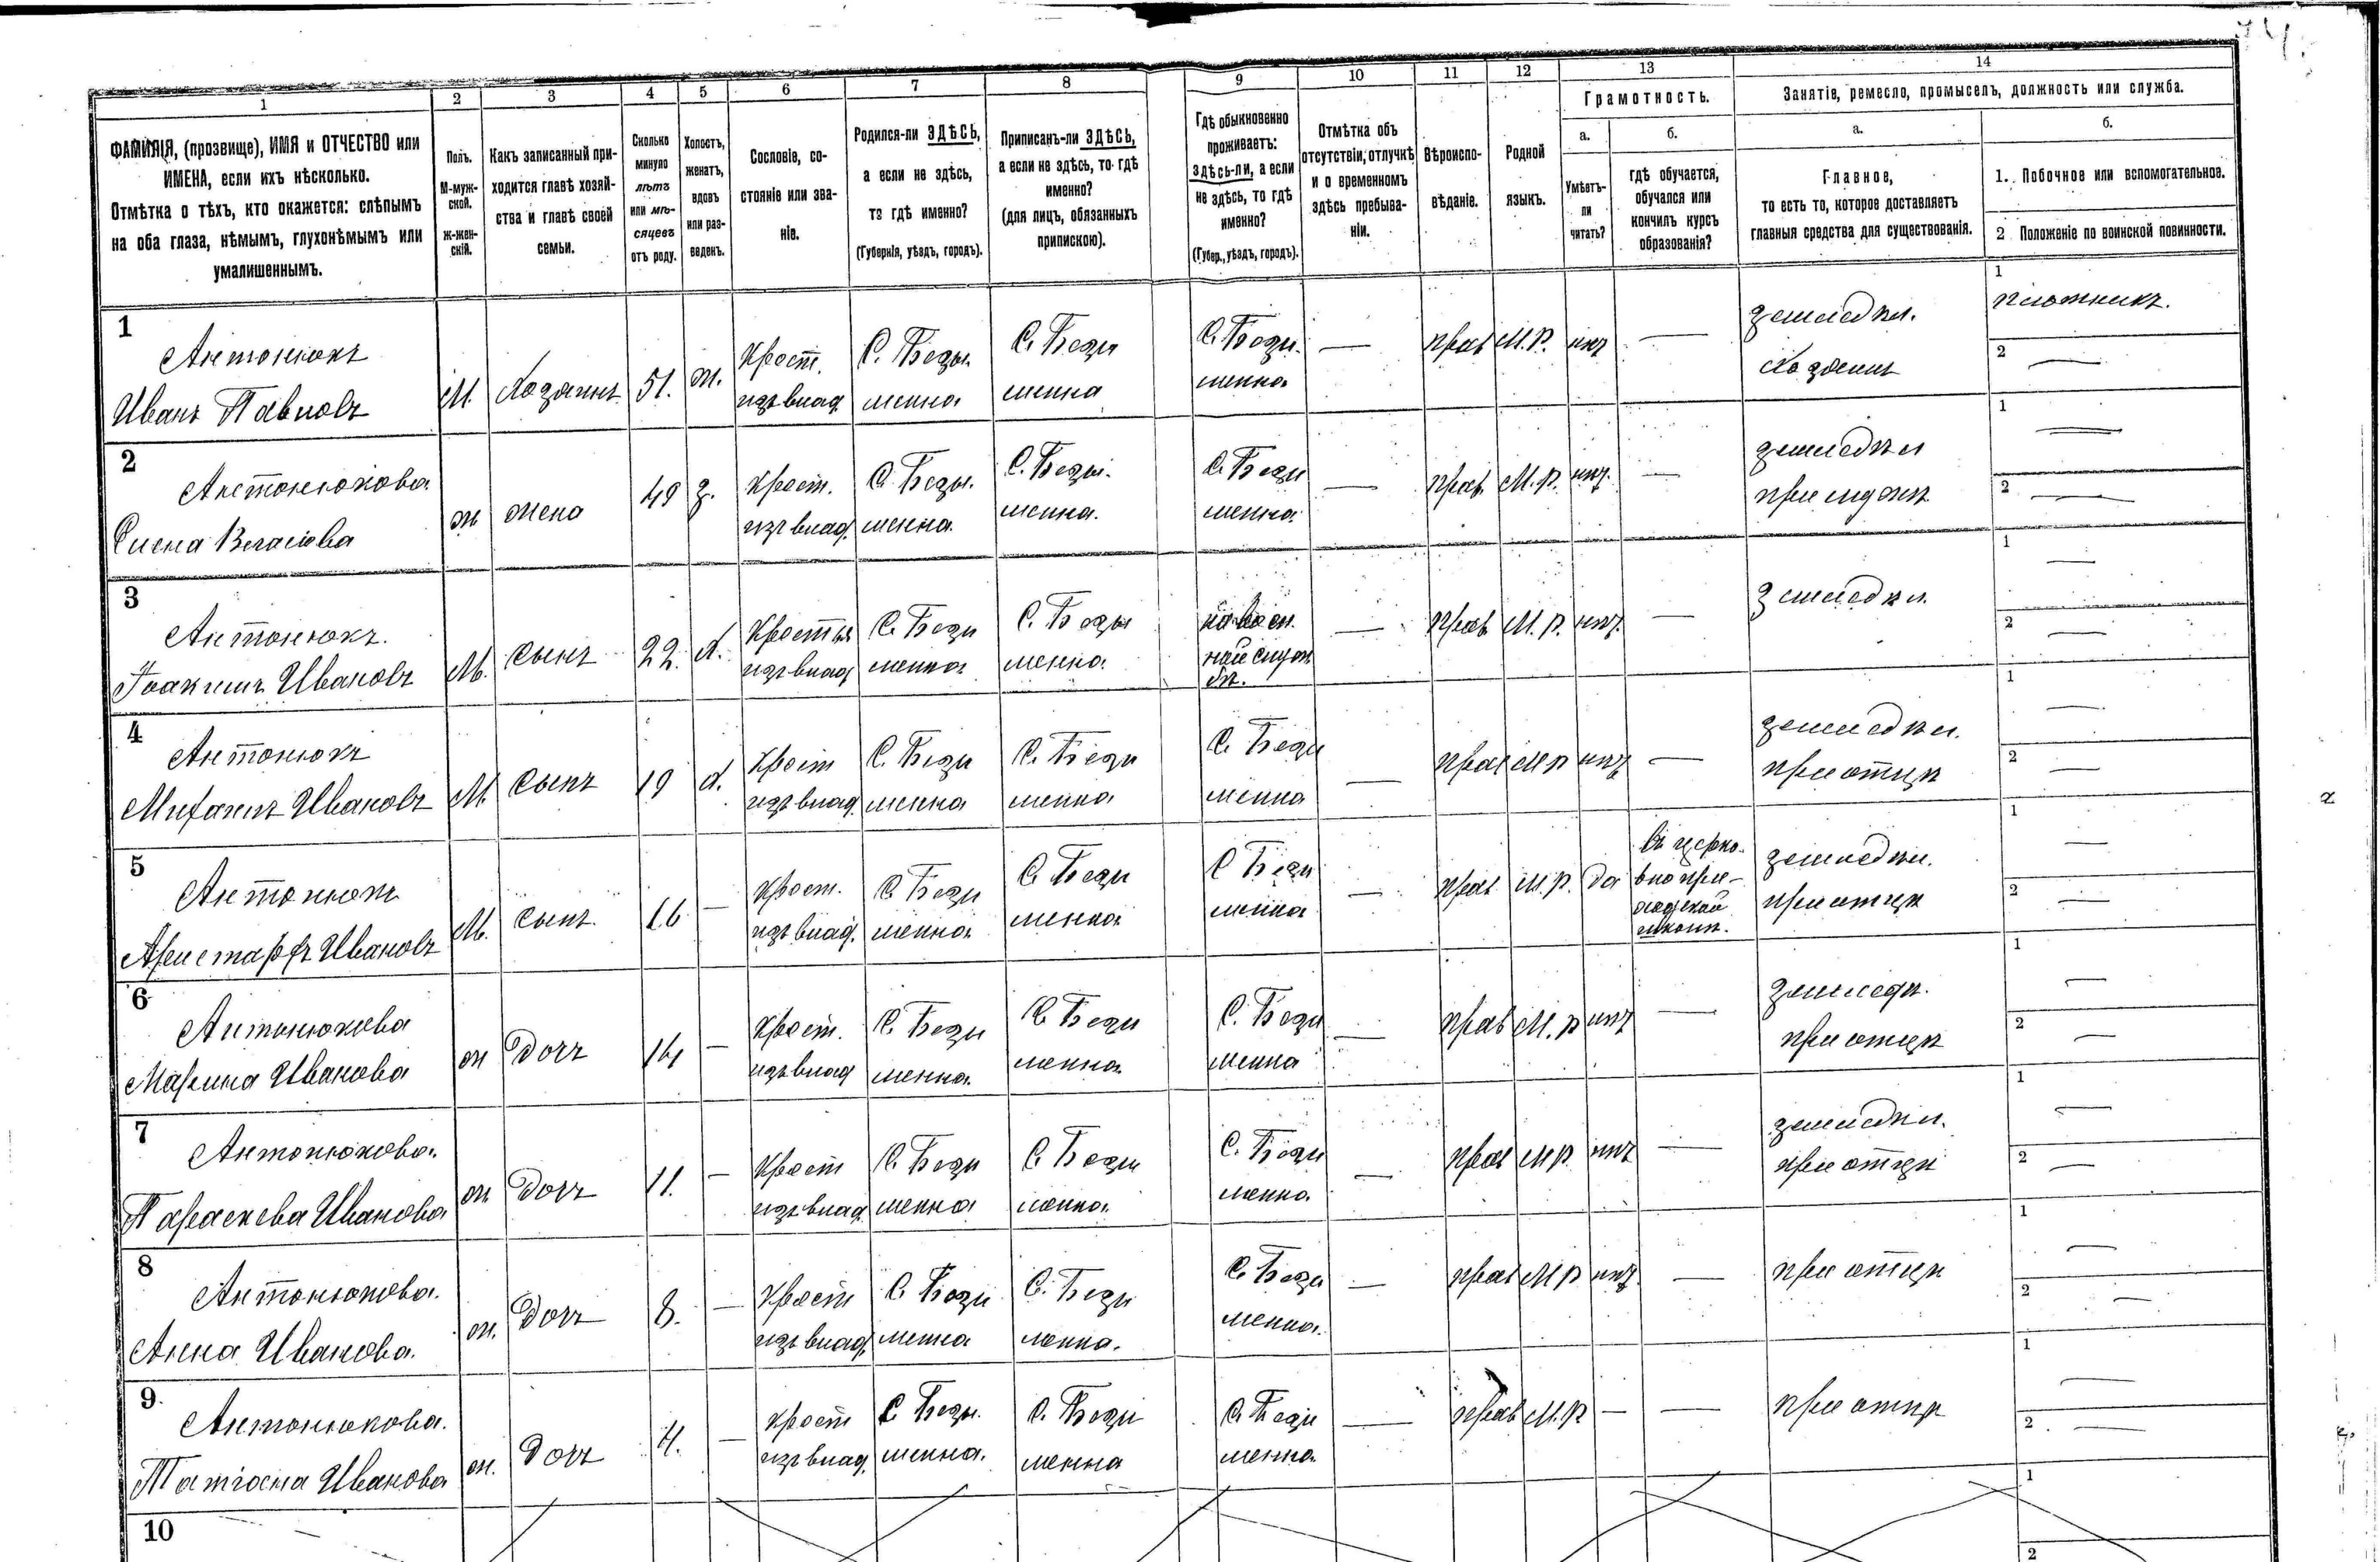 74.
1 2 3 4 5 6 7 8 9 10 11 12 13 14
ФАМИЛІЯ, (прозвище), ИМЯ и ОТЧЕСТВО или
ИМЕНА, если ихъ нѣсколько.
Отмѣтка о тѣхъ, кто окажется: слѣпымъ
на оба глаза, нѣмымъ, глухонѣмымъ или
умалишеннымъ.
Полъ.
М-муж-
ской.
Ж-жен-
скій.
Какъ записанный при-
ходится главѣ хозяй-
ства и главѣ своей
семьи.
Сколько
минуло
лѣтъ
или мѣ-
сяцевъ
отъ роду.
Холостъ,
женатъ,
вдовъ
или раз-
веденъ.
Сословіе, со-
стояніе или зва-
ніе.
Родился-ли ЗДѢСЬ,
а если не здѣсь,
то гдѣ именно?
(Губернія, уѣздъ, городъ).
Приписанъ-ли ЗДѢСЬ,
а если не здѣсь, то гдѣ
именно?
(для лицъ, обязанныхъ
припискою).
Гдѣ обыкновенно
проживаетъ:
здѣсь-ли, а если
не здѣсь, то гдѣ
именно?
(Губер., уѣздъ, городъ).
Отмѣтка объ
отсутствіи, отлучкѣ
и о временномъ
здѣсь пребыва-
ніи.
Вѣроиспо-
вѣданіе.
Родной
языкъ.
Грамотность.
а.
Умѣетъ-
ли
читать?
б.
гдѣ обучается,
обучался или
кончилъ курсъ
образованія?
Занятіе, ремесло, промыселъ, должность или служба.
а.
Главное,
то есть то, которое доставляетъ
главныя средства для существованія.
б.
1. Побочное или вспомогательное.
2 Положеніе по воинской повинности.
1
Антонюкъ
Иванъ Павловъ
М. Хозяинъ 51. ж.
Крест.
изъ влад.
С. Бези
менна
С. Бези
менна
С. Бези.
менна
— прав М.Р. нѣт —
земледѣл.
Хозяинъ
1 плотникъ.
2 —
2
Антонюкова
Елена Власова
ж жена 49 з.
Крест.
изъ влад.
С. Бези.
менна
С. Бези.
менна.
С. Бези
менна
— прав. М.р. нѣт. —
земледѣл
при мужѣ
1 —
2 —
3
Антонюкъ.
Іоакимъ Ивановъ
М. сынъ 22. х.
Крестья
изъ влад
С. Бези
менна
С. Бези
менна
на воен.
ной служ
бѣ.
— прав М.р. нѣт. —
Земледѣл.
1 —
2 —
4
Антонюкъ
Михаилъ Ивановъ
М. Сынъ 19 х.
Крест
изъ влад.
С. Бези
менна
С. Бези
менна
С. Бези
менна
— прав М р нѣт —
земледѣл.
при отцѣ
1 —
2 —
5
Антонюкъ
Аристархъ Ивановъ
М. сынъ. 16 —
Крест.
изъ влад.
С. Бези
менна
С Бези
менна
С Бези
менна
— прав М.р. да
въ церко-
вно при-
ходской
школѣ.
земледѣл.
при отцѣ
1 —
2 —
6
Антонюкова
Марина Иванова
ж Дочь 14 —
Крест.
изъ влад
С. Бези
менна.
С Бези
менна
С. Бези
менна
— прав М.р нѣт —
земледѣ.
при отцѣ
1 —
2 —
7
Антонюкова.
Параскева Иванова
ж Дочь 11. —
Крест
изъ влад.
С. Бези
менна
С Бези
менна
С. Бези
менна
— прав М р. нѣт —
земледѣл.
при отцѣ
1 —
2 —
8
Антонюкова.
Анна Иванова.
ж. Дочь 8. —
Крест
изъ влад.
С Бези
менна
С. Бези
менна.
С. Бези
менна.
— прав М р нѣт. —
при отцѣ
1 —
2 —
9.
Антонюкова.
Татіана Иванова
ж. Дочь 4. —
Крест
изъ влад.
С Бези.
менна.
С. Бези
менна
С. Бези
менна.
— прав М.р — —
при отцѣ
1 —
2 —
10
1
2